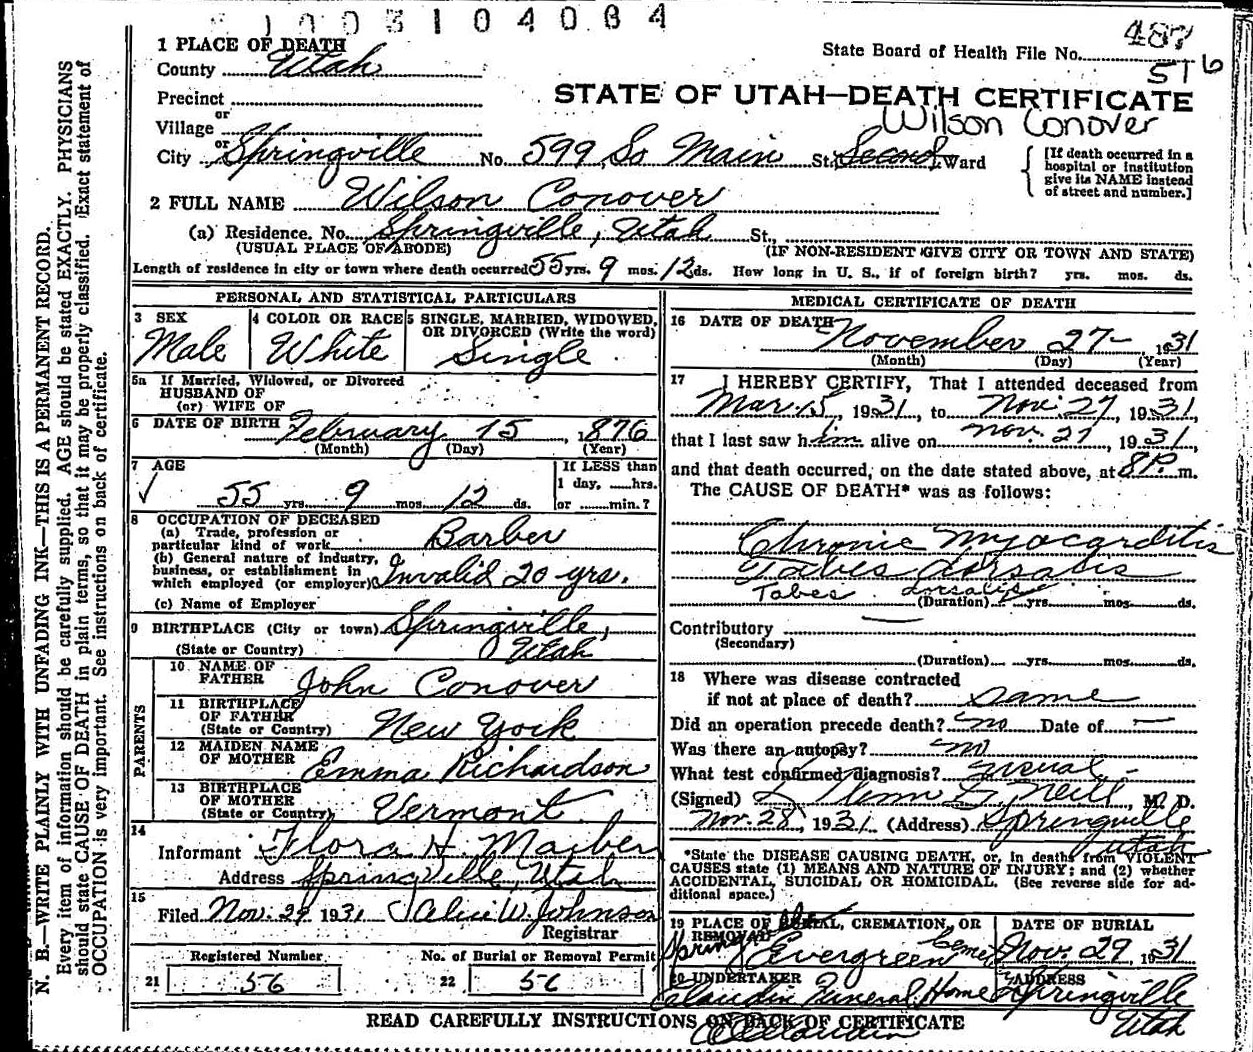 1003104084
487
516
1 PLACE OF DEATH
County Utah
State Board of Health File No.
Precinct
or
Village
STATE OF UTAH—DEATH CERTIFICATE
Wilson Conover
or
City Springville No. 599 So Main St. Second Ward
[If death occurred in a hospital or institution give its NAME instead of street and number.]
2 FULL NAME Wilson Conover
(a) Residence. No. Springville, Utah St.,
(USUAL PLACE OF ABODE) (IF NON-RESIDENT GIVE CITY OR TOWN AND STATE)
Length of residence in city or town where death occurred 55 yrs. 9 mos. 12 ds. How long in U. S., if of foreign birth? yrs. mos. ds.
PERSONAL AND STATISTICAL PARTICULARS
3 SEX
Male
4 COLOR OR RACE
White
5 SINGLE, MARRIED, WIDOWED,
OR DIVORCED (Write the word)
Single
5a If Married, Widowed, or Divorced
HUSBAND OF
(or) WIFE OF
6 DATE OF BIRTH February 15, 1876
(Month) (Day) (Year)
7 AGE
55 yrs. 9 mos. 12 ds.
If LESS than
1 day, hrs.
or min.?
8 OCCUPATION OF DECEASED
(a) Trade, profession or
particular kind of work Barber
(b) General nature of industry,
business, or establishment in
which employed (or employer) Invalid 20 yrs.
(c) Name of Employer
9 BIRTHPLACE (City or town) Springville,
(State or Country) Utah
PARENTS
10 NAME OF
FATHER John Conover
11 BIRTHPLACE
OF FATHER
(State or Country) New York
12 MAIDEN NAME
OF MOTHER Emma Richardson
13 BIRTHPLACE
OF MOTHER
(State or Country) Vermont
14
Informant Flora H.
Address Springville, Utah
15
Filed Nov. 29 1931 Alice W. Johnson
Registrar
Registered Number No. of Burial or Removal Permit
21 56 22 56
MEDICAL CERTIFICATE OF DEATH
16 DATE OF DEATH November 27- 1931
(Month) (Day) (Year)
17 I HEREBY CERTIFY, That I attended deceased from
Mar. 15, 1931, to Nov. 27 1931,
that I last saw him alive on Nov. 27, 1931,
and that death occurred, on the date stated above, at 8 P. m.
The CAUSE OF DEATH* was as follows:
Chronic Myocarditis
Tabes dorsalis
Tabes dorsalis
(Duration) yrs. mos. ds.
Contributory
(Secondary)
(Duration) yrs. mos. ds.
18 Where was disease contracted
if not at place of death? Same
Did an operation precede death? no Date of
Was there an autopsy? no
What test confirmed diagnosis? usual
(Signed) M. D.
Nov. 28, 1931 (Address) Springville
Utah
*State the DISEASE CAUSING DEATH, or, in deaths from VIOLENT
CAUSES state (1) MEANS AND NATURE OF INJURY; and (2) whether
ACCIDENTAL, SUICIDAL OR HOMICIDAL. (See reverse side for ad-
ditional space.)
19 PLACE OF BURIAL, CREMATION, OR
REMOVAL
Evergreen Cem.
DATE OF BURIAL
Nov. 29, 1931
20 UNDERTAKER
Claudin Funeral Home
ADDRESS
Springville
Utah
READ CAREFULLY INSTRUCTIONS ON BACK OF CERTIFICATE
N. B.—WRITE PLAINLY WITH UNFADING INK—THIS IS A PERMANENT RECORD.
Every item of information should be carefully supplied. AGE should be stated EXACTLY. PHYSICIANS
should state CAUSE OF DEATH in plain terms, so that it may be properly classified. Exact statement of
OCCUPATION is very important. See instructions on back of certificate.